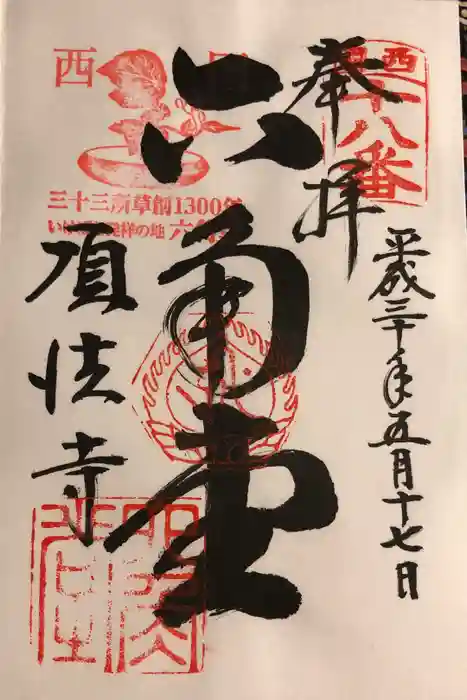 奉拝
西国十八番
平成三十年五月十七日
六角堂
西国
三十三所草創1300年
いけばな発祥の地 六角堂
頂法寺